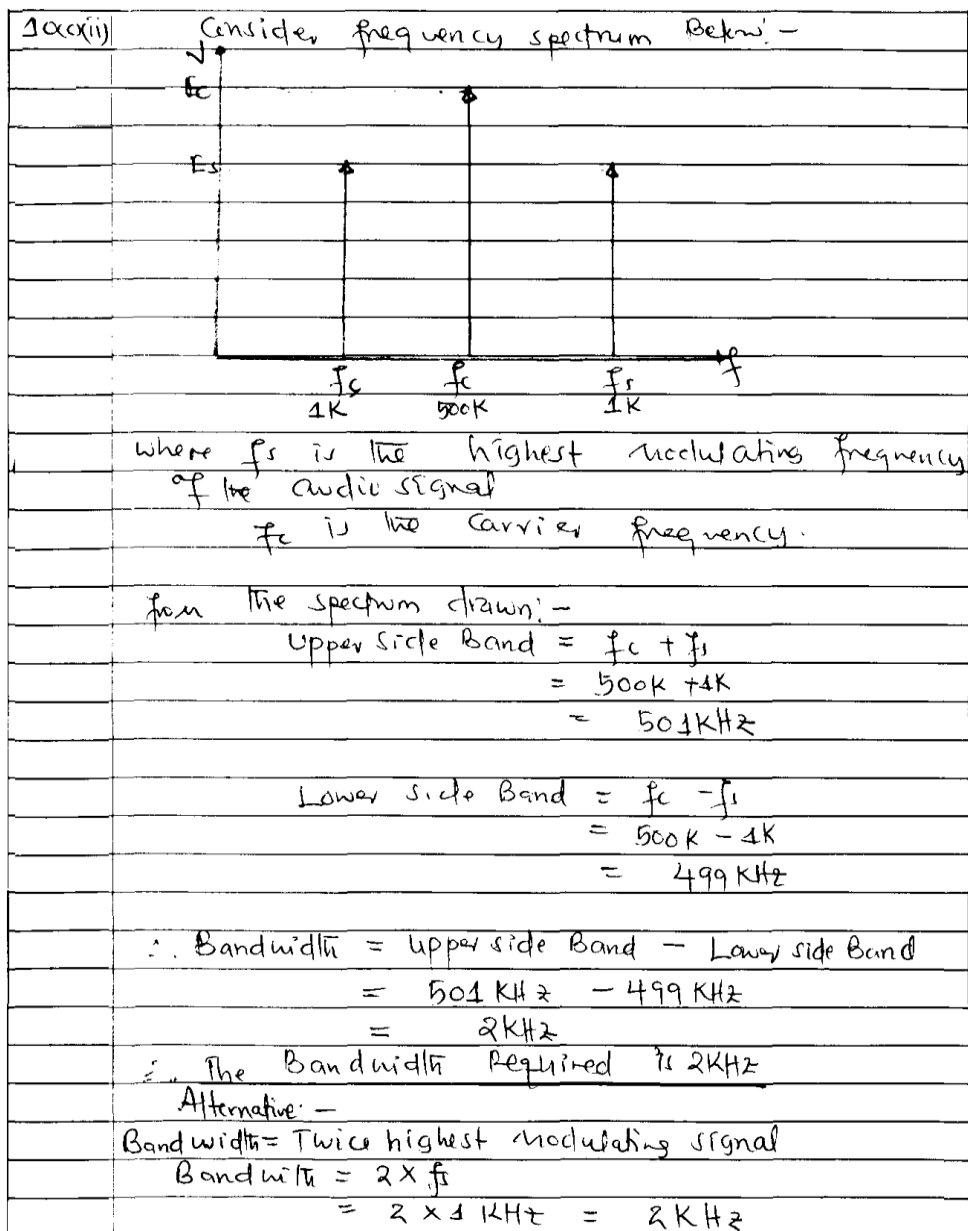 Consider frequency spectrum Below:-
V
Ec
Es
f
fs fc fs
1K 500K 1K
where fs is the highest modulating frequency
of the audio signal
fc is the carrier frequency.
from the spectrum drawn:-
Upper side Band = fc + fs
= 500K + 1K
= 501KHz
Lower side Band = fc - fs
= 500K - 1K
= 499 KHz
∴ Bandwidth = upper side Band - Lower side Band
= 501 KHz - 499 KHz
= 2KHz
∴ The Bandwidth Required is 2KHz
Alternative:-
Bandwidth = Twice highest modulating signal
Bandwith = 2 x fs
= 2 x 1 KHz = 2KHz